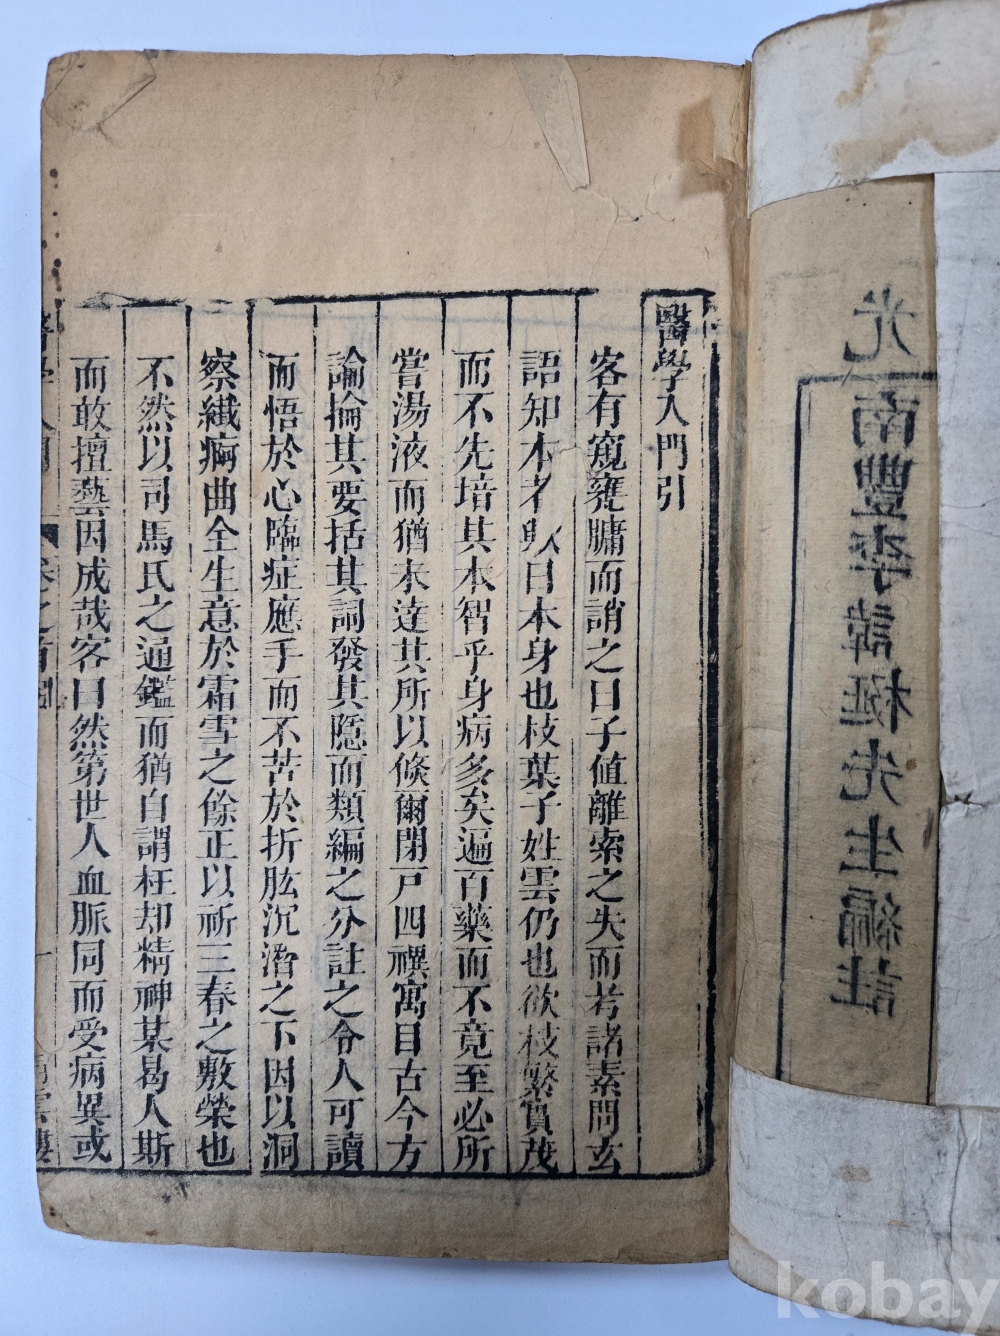 醫學入門引
客有窺甕牖而誚之曰子値離索之失而考諸素問玄
語知本者歟曰本身也枝葉子姓雲仍也欲枝繁實茂
而不先培其本智乎身病多矣遍百藥而不竟至必所
嘗湯液而猶未達其所以倏爾閉戸四禩寓目古今方
論掄其要括其詞發其隱而類編之分註之令人可讀
而悟於心臨症應手而不苦於折肱沉潛之下因以洞
察纖痾曲全生意於霜雪之餘正以祈三春之敷榮也
不然以司馬氏之通鑑而猶自謂枉却精神某曷人斯
而敢擅藝因成哉客曰然第世人血脈同而受病異或
醫學入門 卷之首 引 一
雲樓
南豐李諱梴先生編註
光
kobay